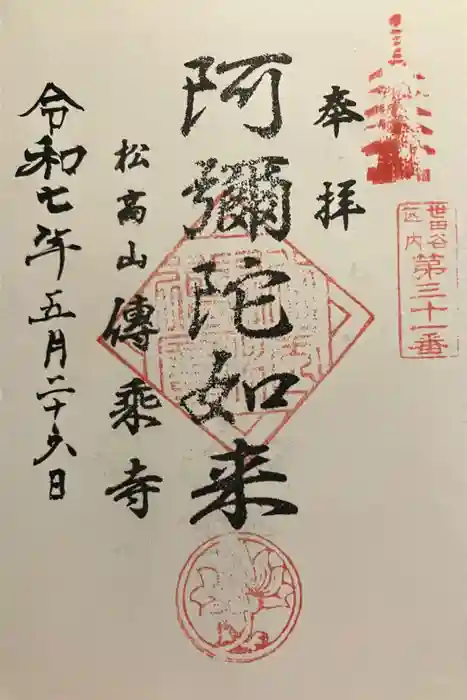 世田谷
区内
第三十一番
奉拝
阿彌陀如来
松高山傳乘寺
令和七年五月二十六日